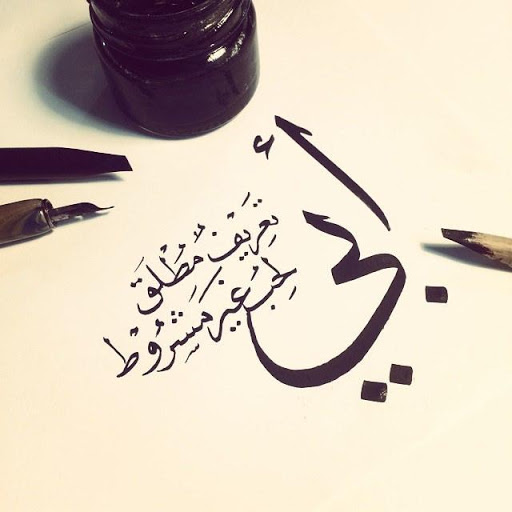 أبي
تعريف مُطْلَق
لِحُب غير مَشْرُوْط